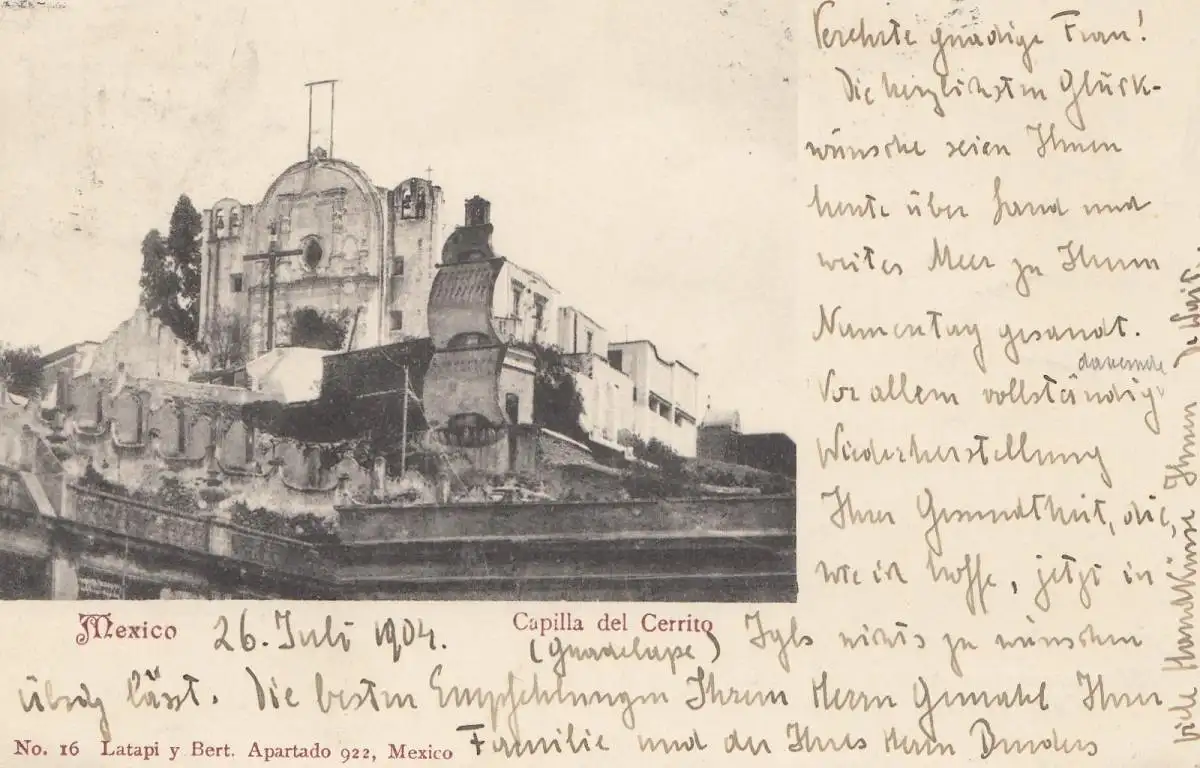 Verehrte gnädige Frau!
Die herzlichsten Glück-
wünsche seien Ihnen
heute über Land und
weites Meer zu Ihrem
Namentag gesandt.
dauernde
Vor allem vollständig
Wiederherstellung
Ihrer Gesundheit, die,
wie ich hoffe, jetzt in
Mexico 26. Juli 1904. Capilla del Cerrito
(Guadelupe) Igls nichts zu wünschen
übrig lässt. Die besten Empfehlungen Ihrem Herrn Gemahl Ihrer
No. 16 Latapi y Bert. Apartado 922, Mexico
Familie und der Ihres Herrn Bruders
viele Handküsse Ihnen